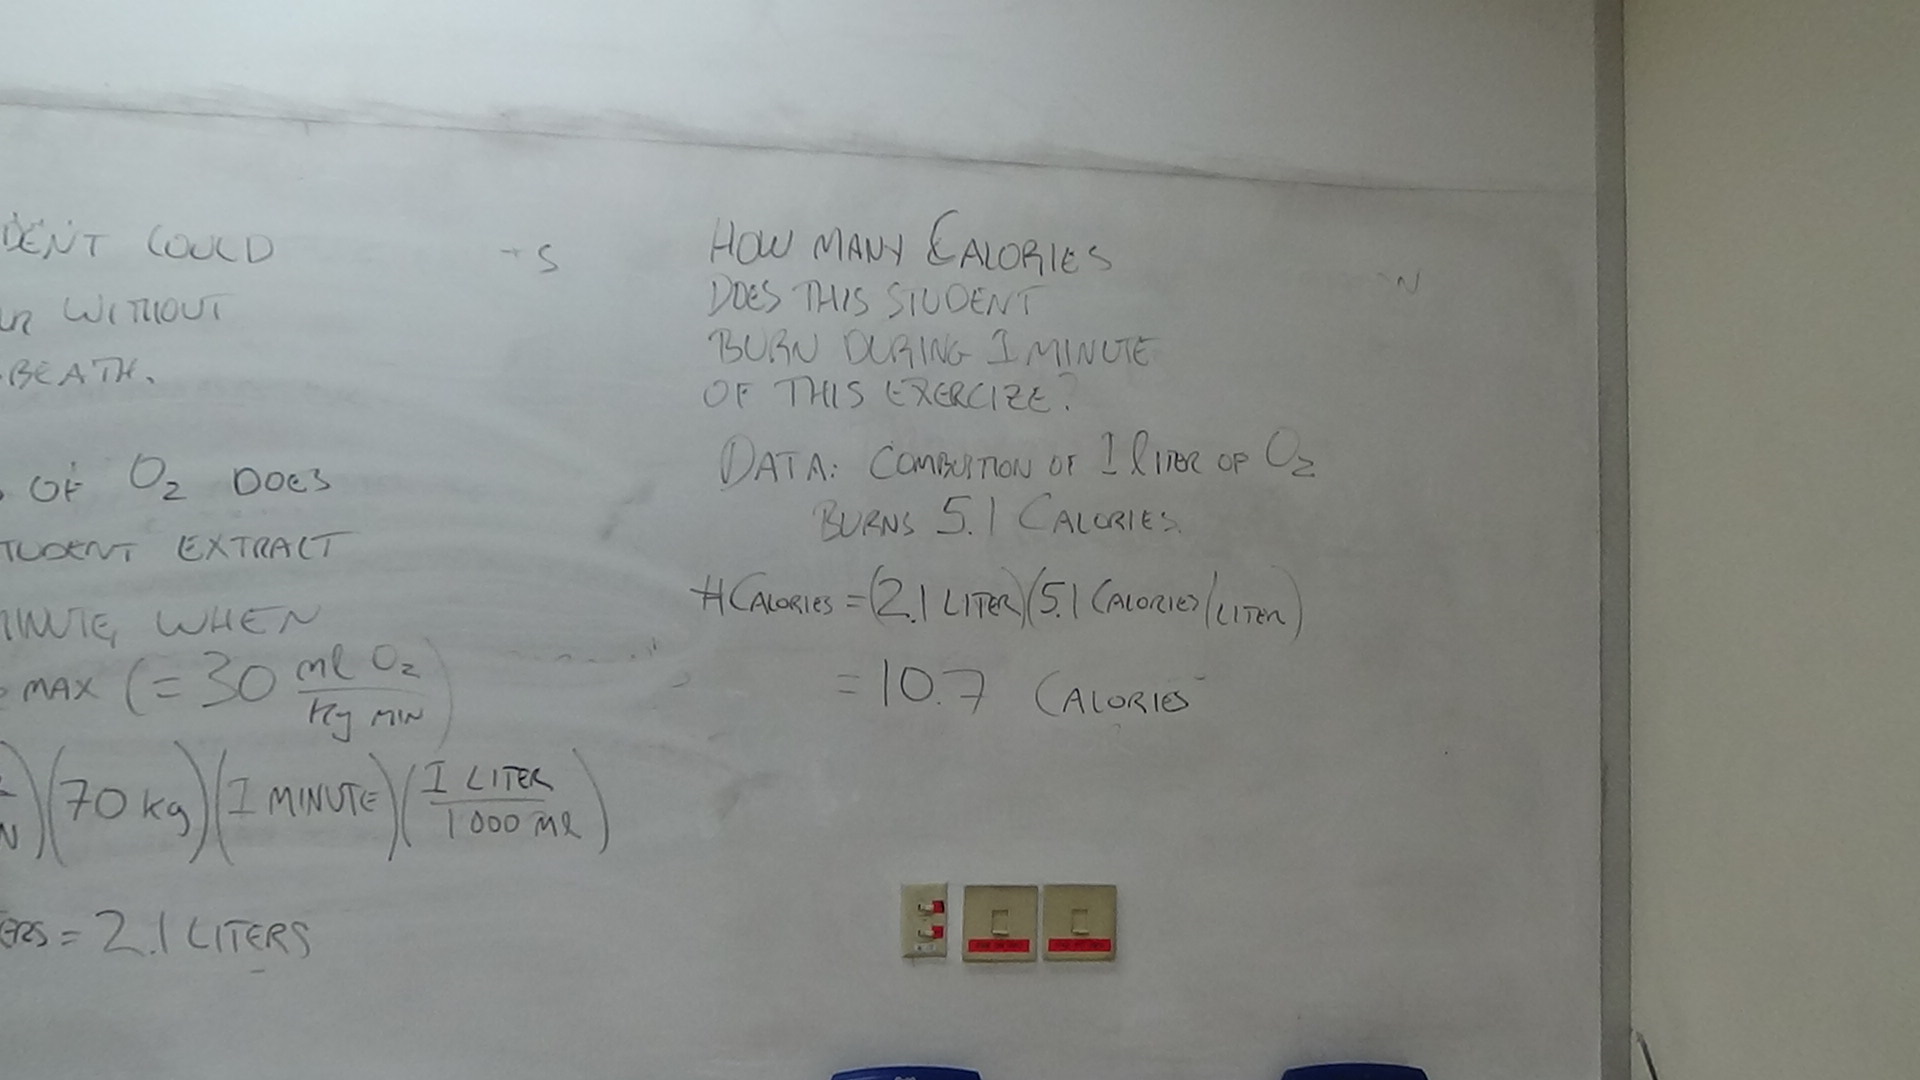 DENT COULD
WITHOUT
BEATH.
OF O2 DOES
TUDENT EXTRACT
MINUTE, WHEN
MAX (= 30 ml O2 / kg MIN)
(70 kg)(1 MINUTE)(1 LITER / 1000 ml)
ERS = 2.1 LITERS
S
HOW MANY CALORIES
DOES THIS STUDENT
BURN DURING 1 MINUTE
OF THIS EXERCIZE?
DATA: COMBUSTION OF 1 liTER OF O2
BURNS 5.1 CALORIES.
# CALORIES = (2.1 LITER)(5.1 CALORIES/LITER)
= 10.7 CALORIES
N